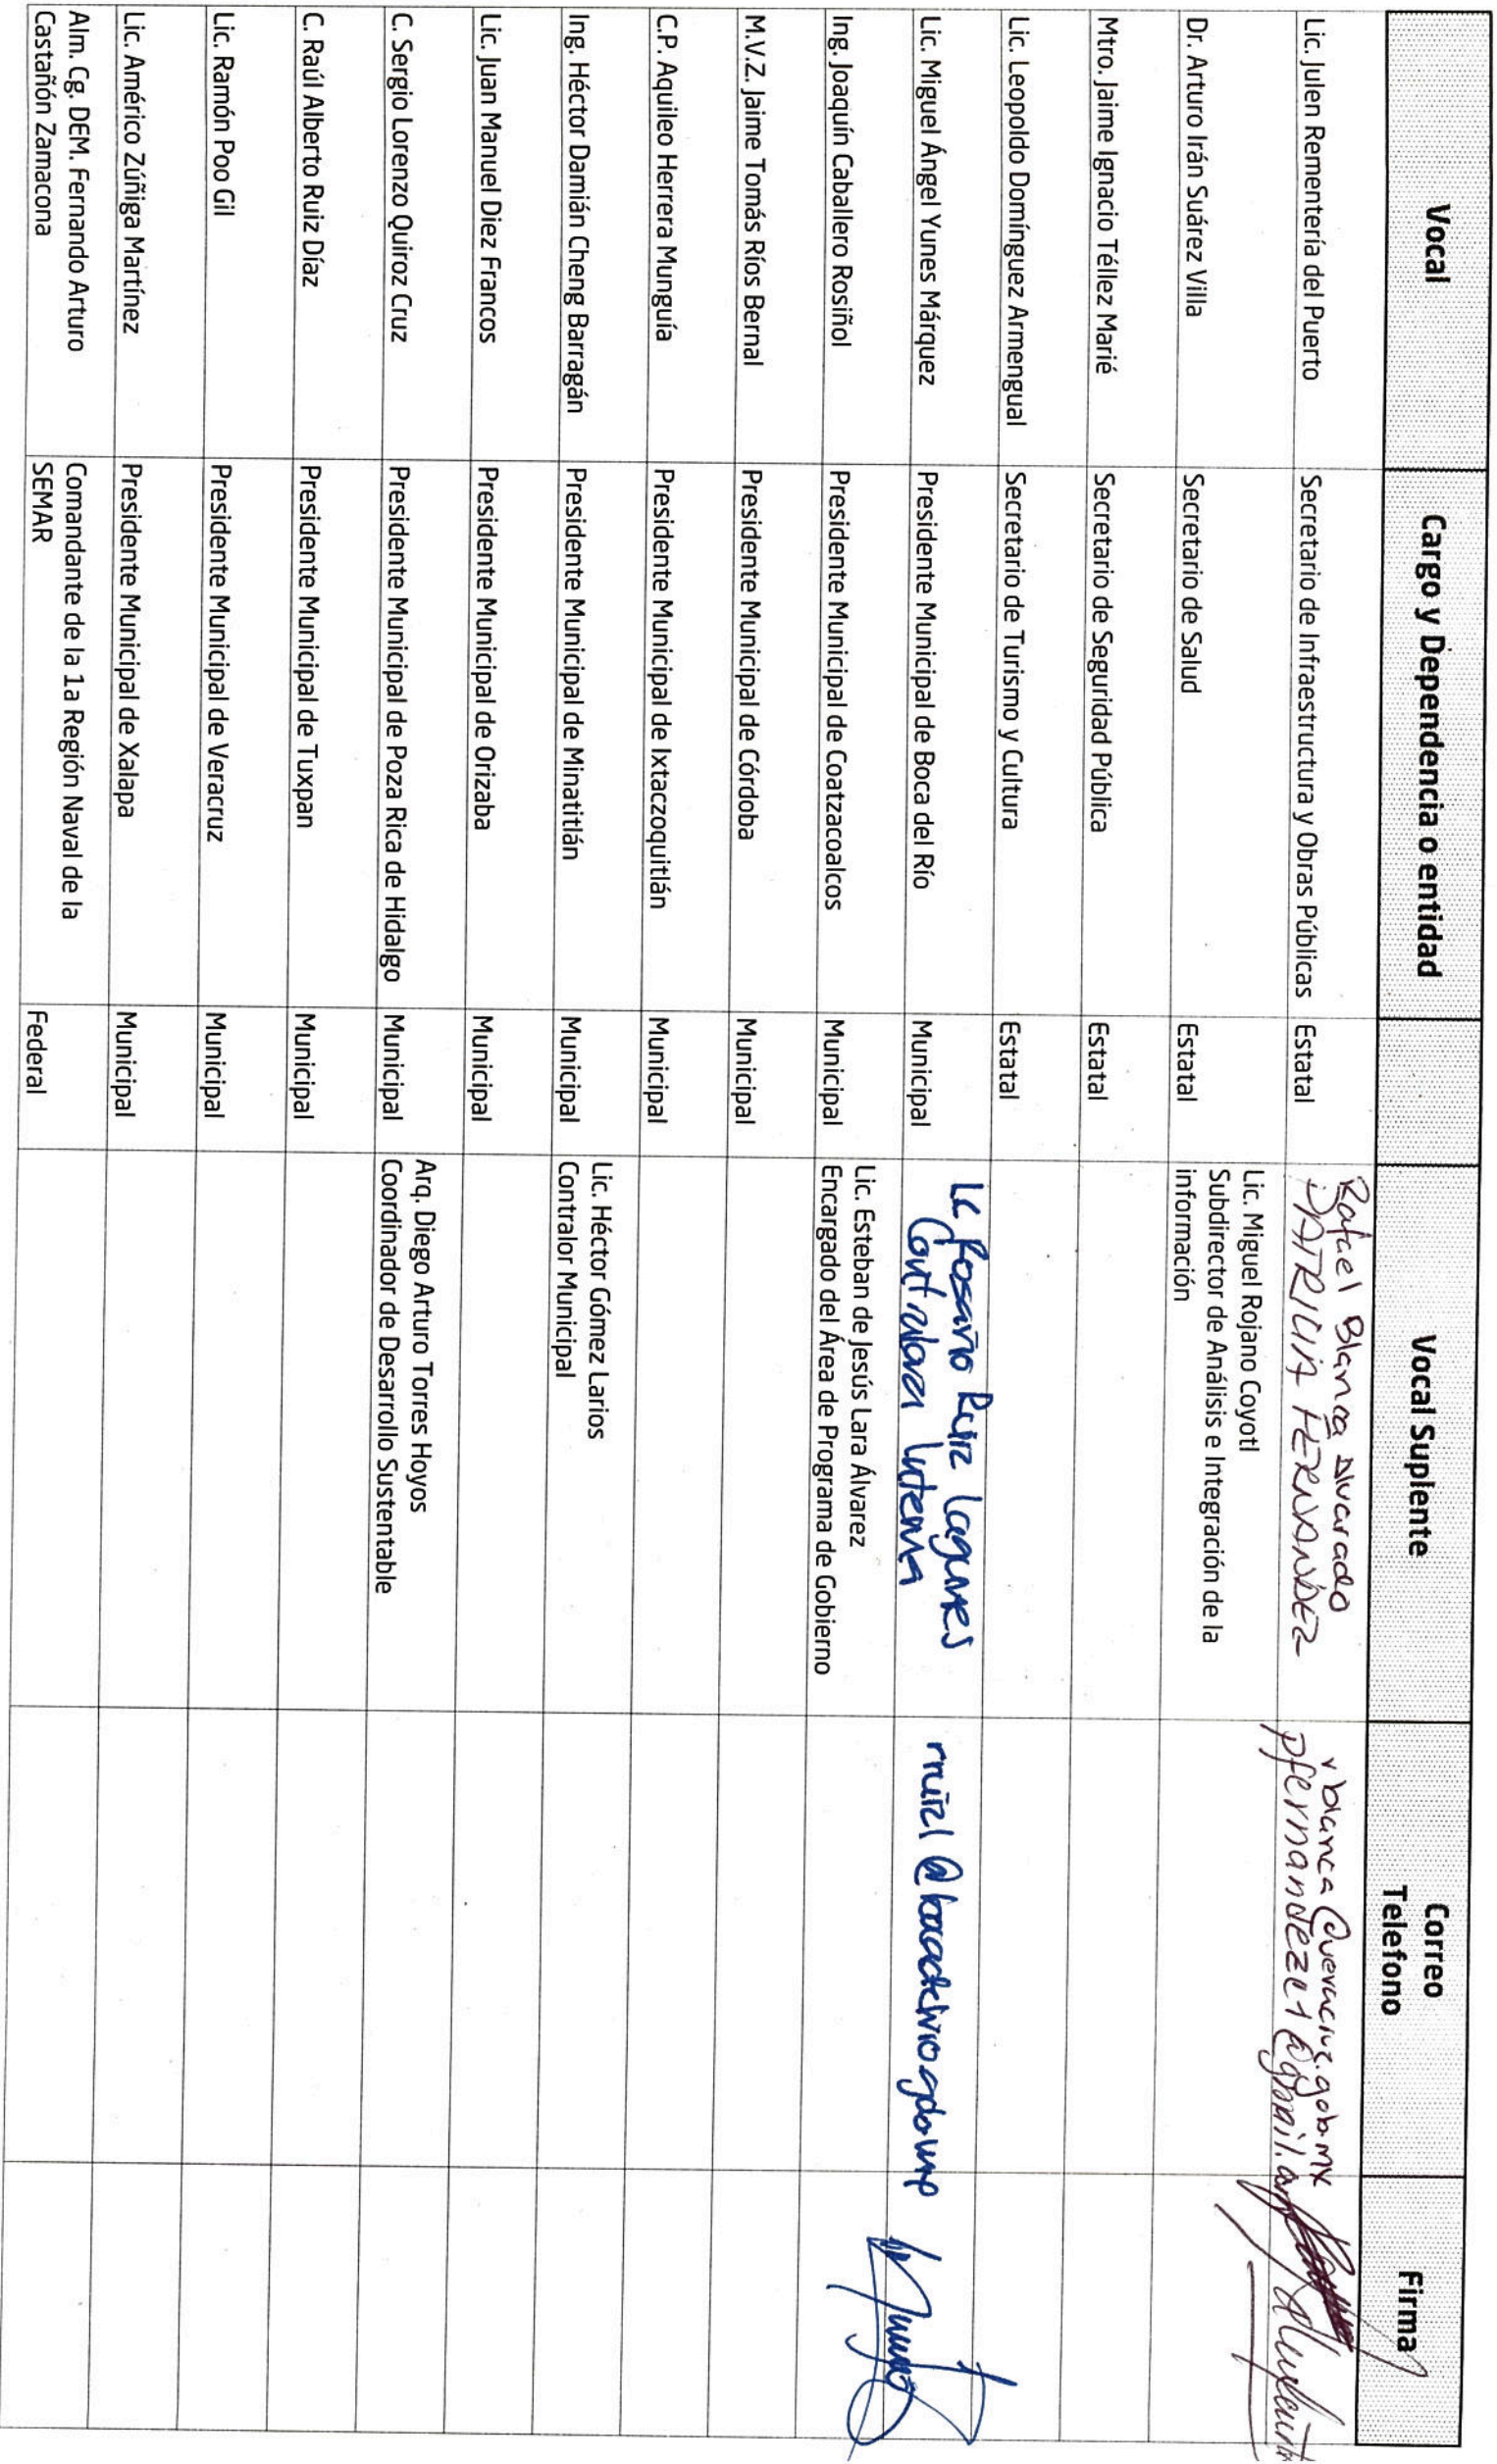 Vocal Cargo y Dependencia o entidad Vocal Suplente Correo Telefono Firma
Lic. Julen Rementería del Puerto Secretario de Infraestructura y Obras Públicas Estatal Rafael Blanca Alvarado rblanca@veracruz.gob.mx
PATRICIA FERNANDEZ
Dr. Arturo Irán Suárez Villa Secretario de Salud Estatal Lic. Miguel Rojano Coyotl
Subdirector de Análisis e Integración de la
información
Mtro. Jaime Ignacio Téllez Marié Secretario de Seguridad Pública Estatal
Lic. Leopoldo Domínguez Armengual Secretario de Turismo y Cultura Estatal
Lic. Miguel Ángel Yunes Márquez Presidente Municipal de Boca del Río Municipal LC Rosario Ruiz Lagunes
Contralora Interna
Ing. Joaquín Caballero Rosiñol Presidente Municipal de Coatzacoalcos Municipal Lic. Esteban de Jesús Lara Álvarez
Encargado del Área de Programa de Gobierno
M.V.Z. Jaime Tomás Ríos Bernal Presidente Municipal de Córdoba Municipal
C.P. Aquileo Herrera Munguía Presidente Municipal de Ixtaczoquitlán Municipal
Ing. Héctor Damián Cheng Barragán Presidente Municipal de Minatitlán Municipal Lic. Héctor Gómez Larios
Contralor Municipal
Lic. Juan Manuel Diez Francos Presidente Municipal de Orizaba Municipal
C. Sergio Lorenzo Quiroz Cruz Presidente Municipal de Poza Rica de Hidalgo Municipal Arq. Diego Arturo Torres Hoyos
Coordinador de Desarrollo Sustentable
C. Raúl Alberto Ruiz Díaz Presidente Municipal de Tuxpan Municipal
Lic. Ramón Poo Gil Presidente Municipal de Veracruz Municipal
Lic. Américo Zúñiga Martínez Presidente Municipal de Xalapa Municipal
Alm. Cg. DEM. Fernando Arturo Comandante de la 1a Región Naval de la Federal
Castañón Zamacona SEMAR